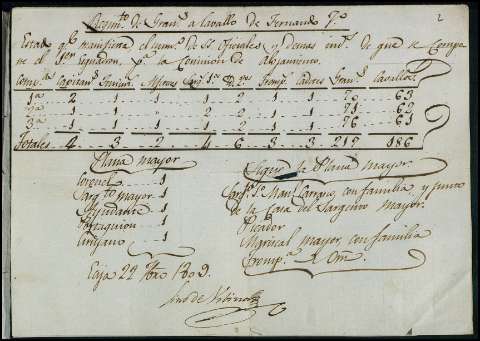 2
Regim.to de Gran.s a Cavallo de Fernando 7.o
Estado q.e manifiesta el num.o de S.s Oficiales y demas ind.s de que se Compo
ne el Escuadron, p.a la Comision de Alojamiento.
Comp.as Capitan.s Sarg.s 1.os Tromp. Gran.s Cavallos
1a 2 1 1 1 2 1 1 70 63
2a 1 1 " 2 2 1 1 71 62
3a 1 1 1 1 2 1 1 76 61
Totales 4 3 2 4 6 3 3 217 186
Plana mayor
Coronel 1
Sarg.to mayor 1
Ayudante 1
Portaguion 1
Cirujano 1
Sigue la Plana mayor.
Man.l con familia, y junto
de la Casa del Sargento mayor.
Picador
Mariscal mayor, con familia
Tromp.a de Orn.
1809.